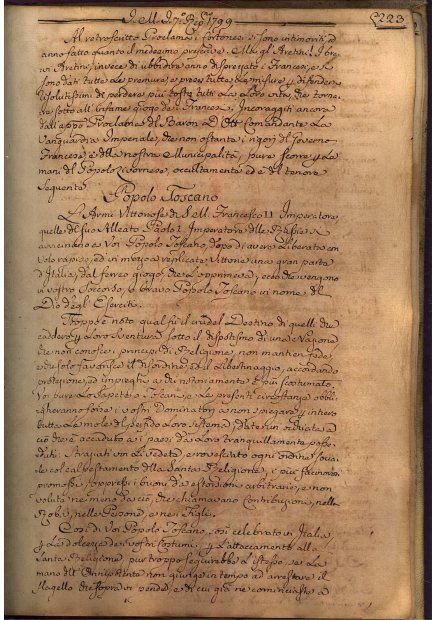 1799
223
Al retroscritto Proclama i Cortonesi si sono intimoriti, ed
anno fatto quanto il medesimo prescrive. Ma gl'Aretini
invece di ubbidire anno dispregiato i Francesi, e si
sono dati tutte le premure, e prese tutte le misure p difendersi
risolutissimi di perdere più tosto tutti la loro vita, che torna
re sotto all'infame giogo de Francesi. Incoraggiti ancora
dall'appo Proclama del Baron D'Ott Comandante La
Vanguardia Imperiale, che non ostante i rigori del Governo
Francese, e della nostra Municipalità, pure scorre p le
mani del Popolo Cortonese occultamente, ed è del tenore
Seguente
Popolo Toscano
Le Armi Vittoriose di S. M. Francesco II Imperatore,
quelle del suo Alleato Paolo I. Imperatore delle Russie s'
avvicinano a Voi Popolo Toscano, dopo di avere liberata con
volo rapido, ed in mezzo a replicate Vittorie una gran parta
d'Italia, dal ferreo giogo, che l'opprimeva; ecco che vengono
in vostro soccorso, o bravo Popolo Toscano in nome del
Dio degl'Eserciti.
Troppo è noto qual fu il crudel Destino di quelli che
caddero p loro sventura sotto il dispotismo di una Nazione
che non conosce principj di Religione, non mantien fede,
e che solo favorisce il disordine, ed il Libertinaggio, accordando
protezione, ed impieghi a chi notoriamente è più scostumato.
Voi pure lo sapete o Toscani, e le presenti circostanze obbli-
gheranno forse i vostri Dominatori a non spiegare p intiero
tutta la mole del perfido loro sistema; date un'occhiata a
ciò che è accaduto a i paesi da Loro tranquillamente posse-
duti. Spogliati voi li vedete, e rovesciato ogni ordine socia-
le col calpestamento della Santa Religione, i più facinorosi
promossi, soppressi i buoni, da estorsioni arbitrarie, e non
voluta nemmeno da ciò, che chiamavano Contribuzioni, nelle
Robe, nelle Persone, e nei Figli.
Così di Voi Popolo Toscano, così celebrato in Italia,
p la dolcezza de vostri costumi, p l'attaccamento alla
Santa Religione, pur troppo seguirebbe l'istesso, se la
mano dell'Onnipotente non giunge in tempo ad arrestare il
flagello che sopra vi pende, e di cui già ne cominciaste a